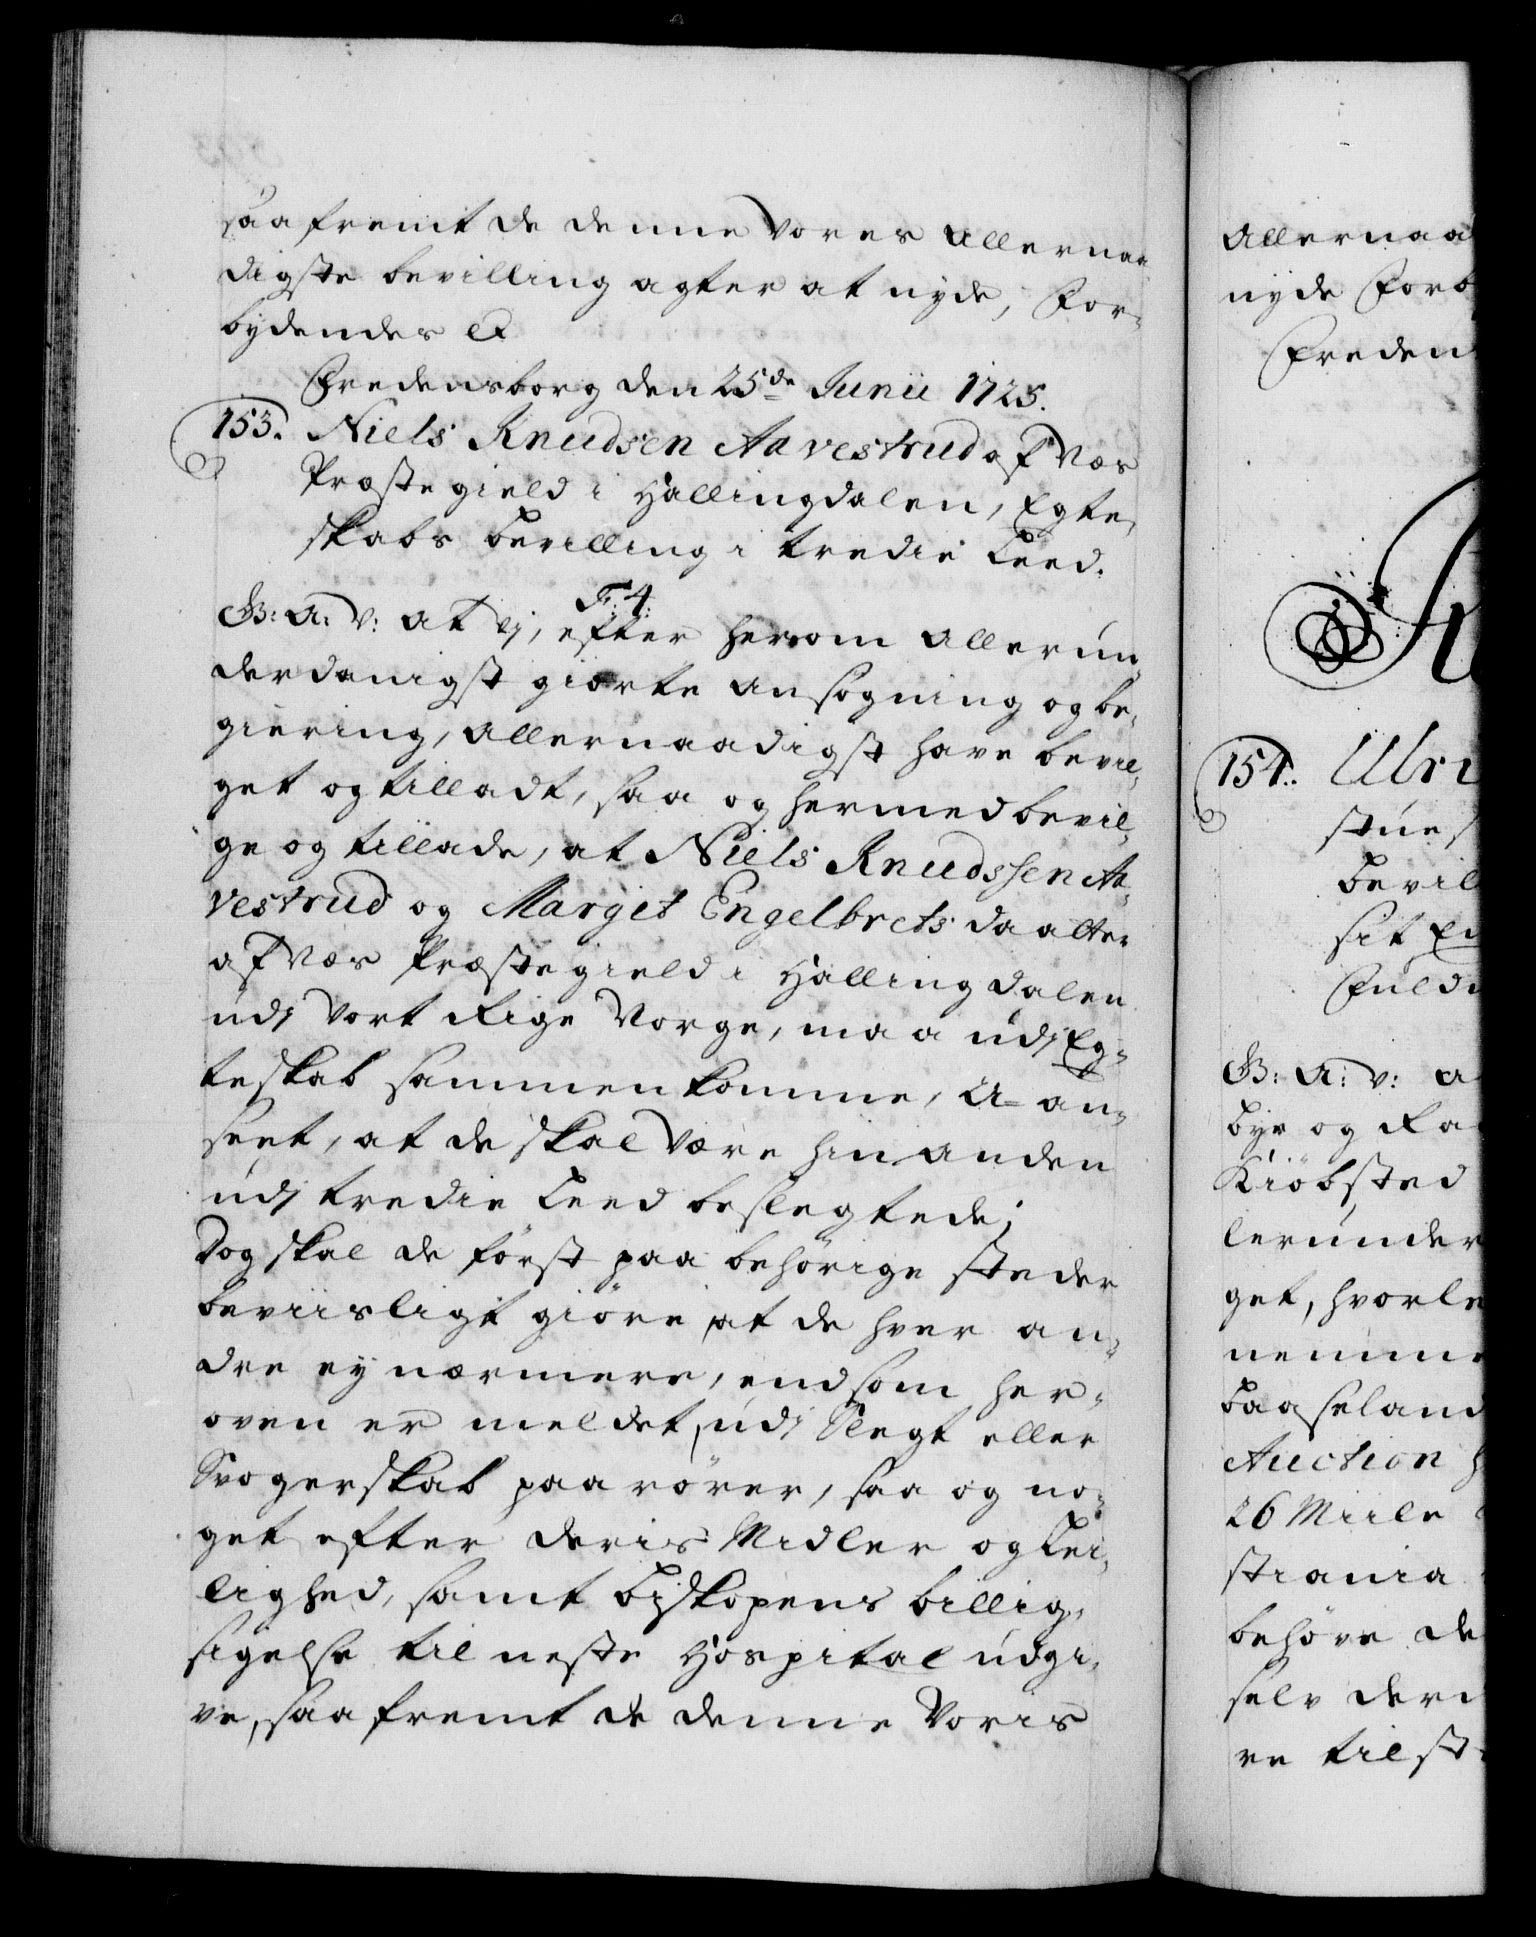 saafremt de denne Vores Allernaa
digste bevilling agter at nyde, For-
bydendes &
Fredensborg den 25de Junii 1725.
153. Niels Knudsen Aavestrud af Næs
Præstegield i Hallingdalen, Egte-
skabs bevilling i tredie Leed.
F: 4:
G: A: V: at Vj, efter herom Allerun-
derdanigst giorte ansøgning og be-
giering, Allernaadigst have bevil-
get og tilladt, saa og hermed bevil-
ge og tillade, at Niels Knudssen Aa-
vestrud og Margit Engelbrets daatter
af Næs Præstegield i Hallingdalen
udj Vort Rige Norge, maa udj Eg-
teskab sammenkomme, U-an-
seet, at de skal være hinanden
udj tredie Leed beslegtede;
Dog skal de først paa behörige steder
beviisligt giöre, at de hver an-
dre ey nærmere, end som her-
oven er meldet, udj Slegt eller
Svogerskab paarörer, saa og no-
get efter deris Midler og Lei-
lighed, samt Biskopens billig-
sigelse til neste Hospital udgi-
ve, saafremt de denne Voris
Allernaad
nyde Forb
Fredens
154. Ulri
stue
bevil
sit En
Fuld
G: A: V: a
byr og Ra
Kiöbsted
lerunder
get, hvorle
nemme
baaseland
Auction h
26 Miile
stiania
behöve de
selv der
re tilst